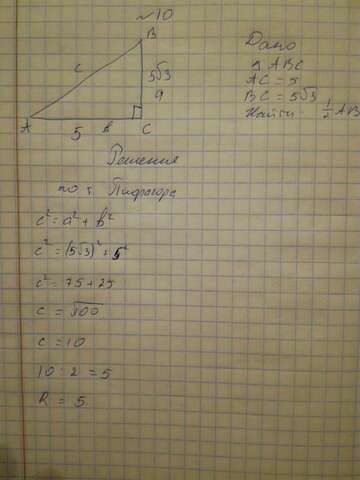 ~10
B
c
5√3
a
A
5
b
C
Дано
Δ ABC
AC = 5
BC = 5√3
Найти - 1/2 AB
Решение
по т. Пифагора
c² = a² + b²
c² = (5√3)² + 5²
c² = 75 + 25
c = √100
c = 10
10 : 2 = 5
R = 5